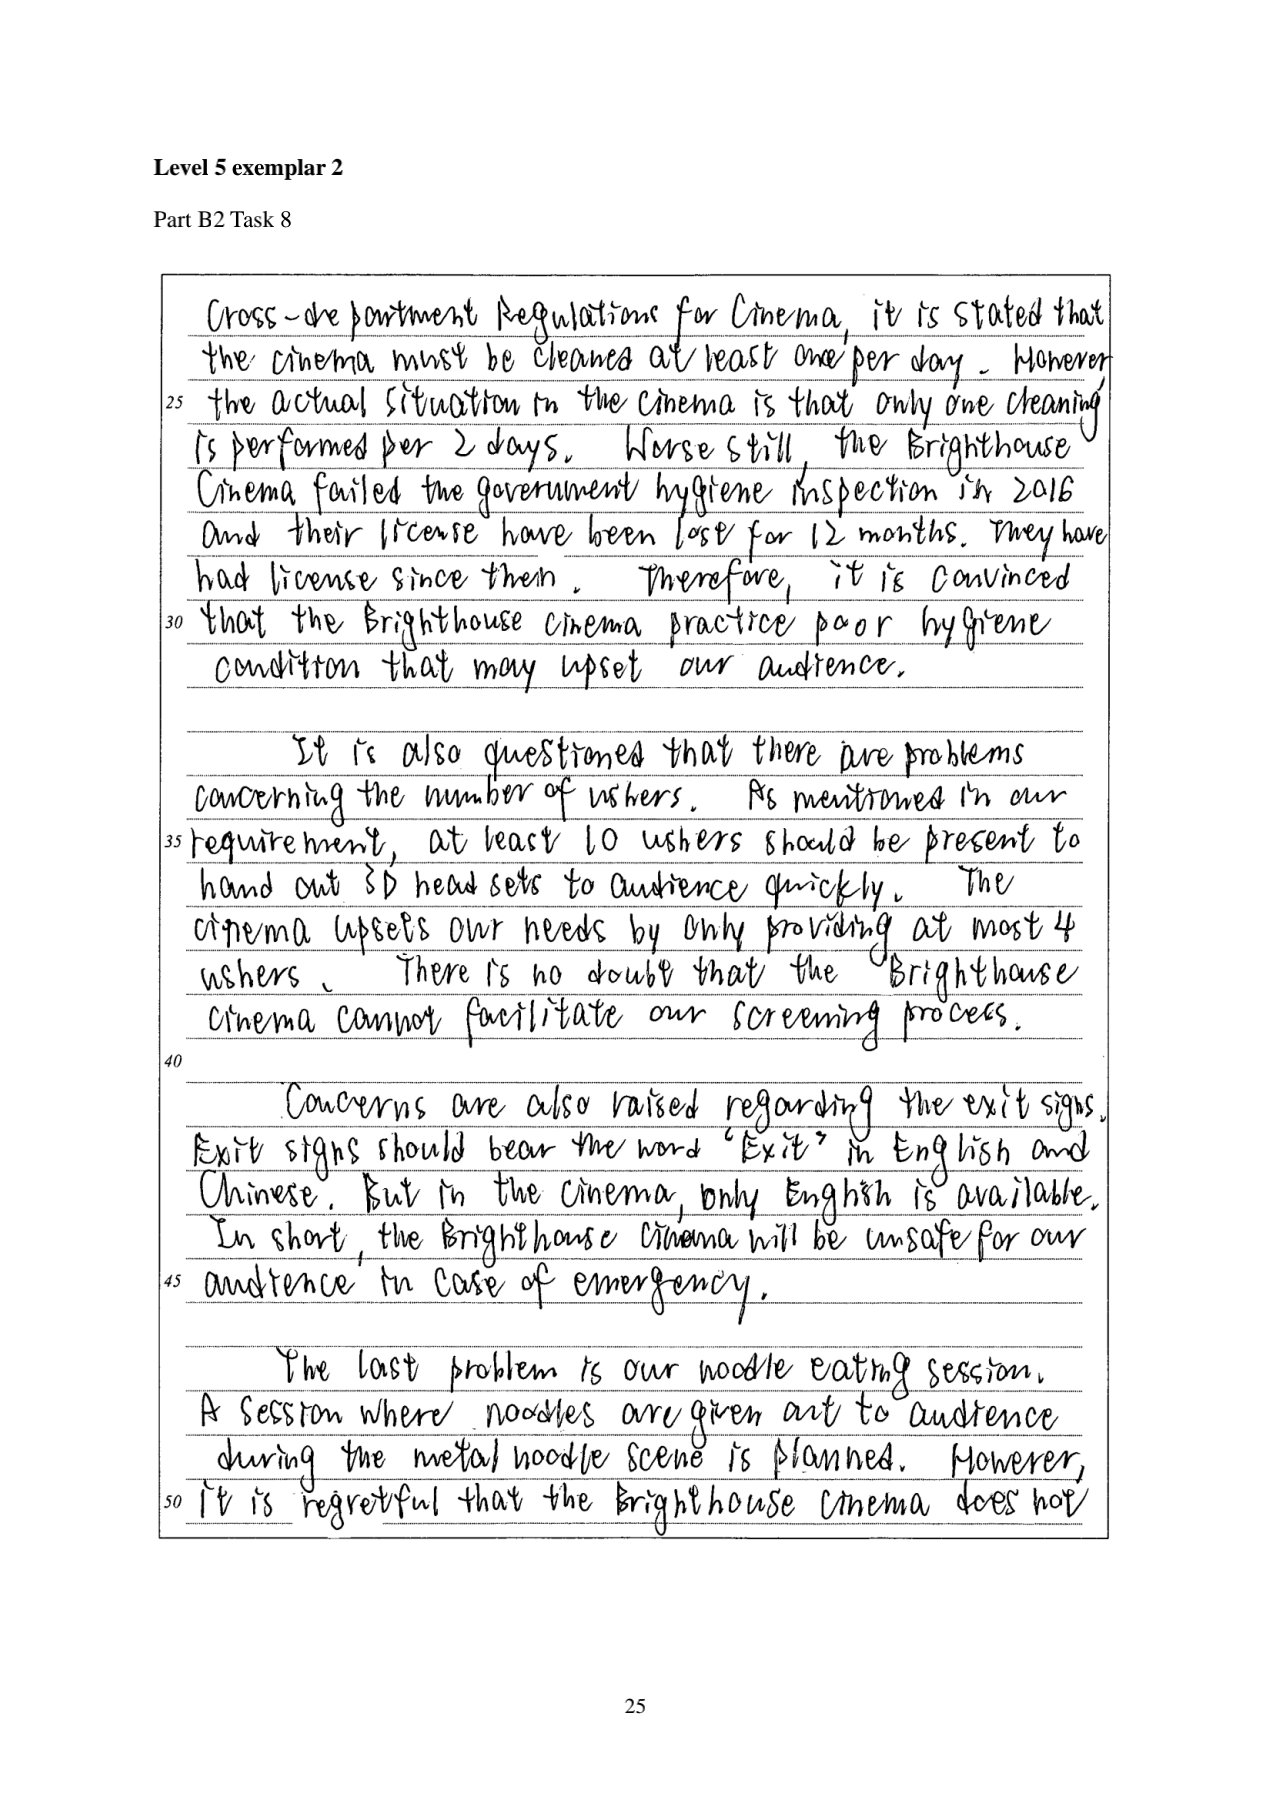 Level 5 exemplar 2
Part B2 Task 8
Cross-department Regulations for Cinema, it is stated that
the cinema must be cleaned at least once per day. However
25 the actual situation in the cinema is that only one cleaning
is performed per 2 days. Worse still, the Brighthouse
Cinema failed the government hygiene inspection in 2016
and their license have been lost for 12 months. They have
had license since then. Therefore, it is convinced
30 that the Brighthouse cinema practice poor hygiene
condition that may upset our audience.
It is also questioned that there are problems
concerning the number of ushers. As mentioned in our
35 requirement, at least 10 ushers should be present to
hand out 3D head sets to audience quickly. The
cinema upsets our needs by only providing at most 4
ushers. There is no doubt that the Brighthouse
cinema cannot facilitate our screening process.
40
Concerns are also raised regarding the exit signs.
Exit signs should bear the word 'Exit' in English and
Chinese. But in the cinema, only English is available.
In short, the Brighthouse cinema will be unsafe for our
45 audience in case of emergency.
The last problem is our noodle eating session.
A session where noodles are given out to audience
during the metal noodle scene is planned. However,
50 it is regretful that the Brighthouse cinema does not
25